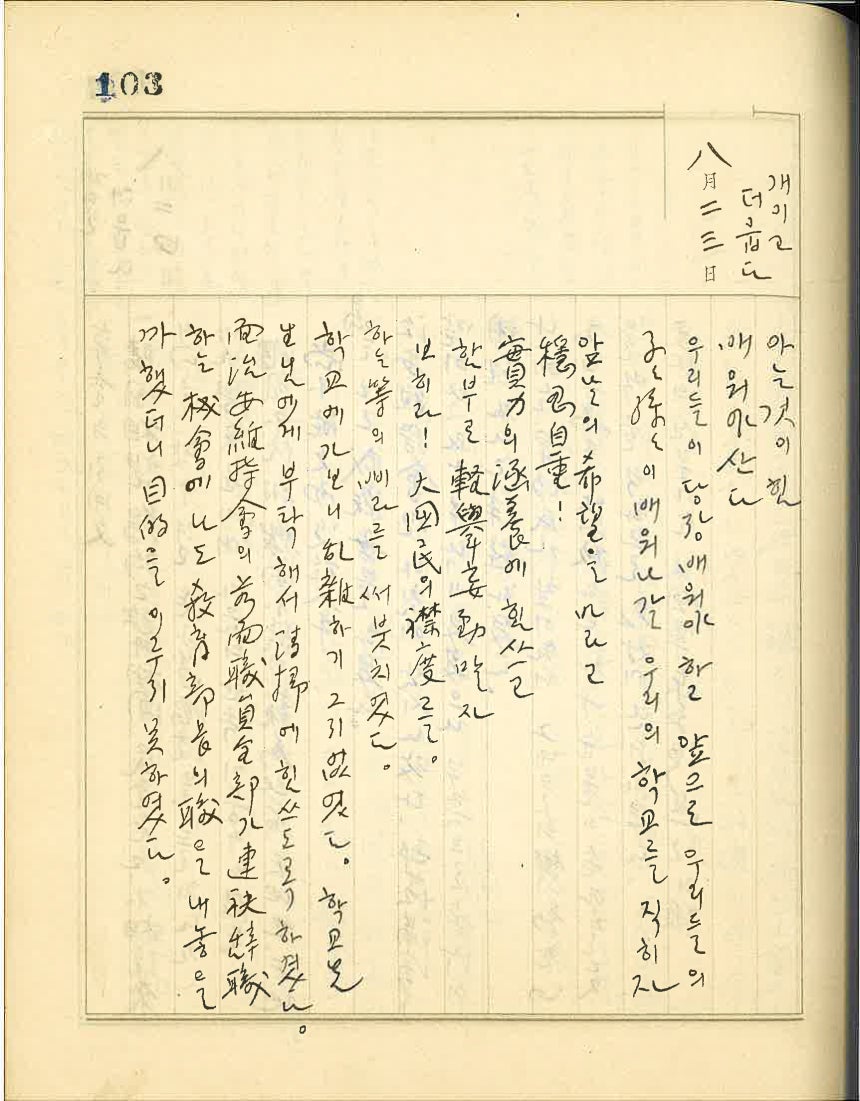 103
개이고
더웁다
八月二三日
아는 것이 힘
배워야 산다
우리들이 당장 배워야 할 앞으로 우리들의
子子孫孫이 배워나갈 우리의 학교를 직히자
앞날의 希望을 바라고
穩忍自重!
實力의 涵養에 힘쓸
함부로 輕擧妄動말자
보히라! 大國民의 襟度를.
하는 等의 삐라를 써붓치였다.
학교에 가보니 乱雜하기 그지없였다. 학교 先
生님에게 부탁해서 淸掃에 힘쓰도록 하였다.
面治安維持會의 前面職員全部가 連袂辞職
하는 机會에 나도 敎育部長의 職을 내놓을
까 했더니 目的을 이루지 못하였다.